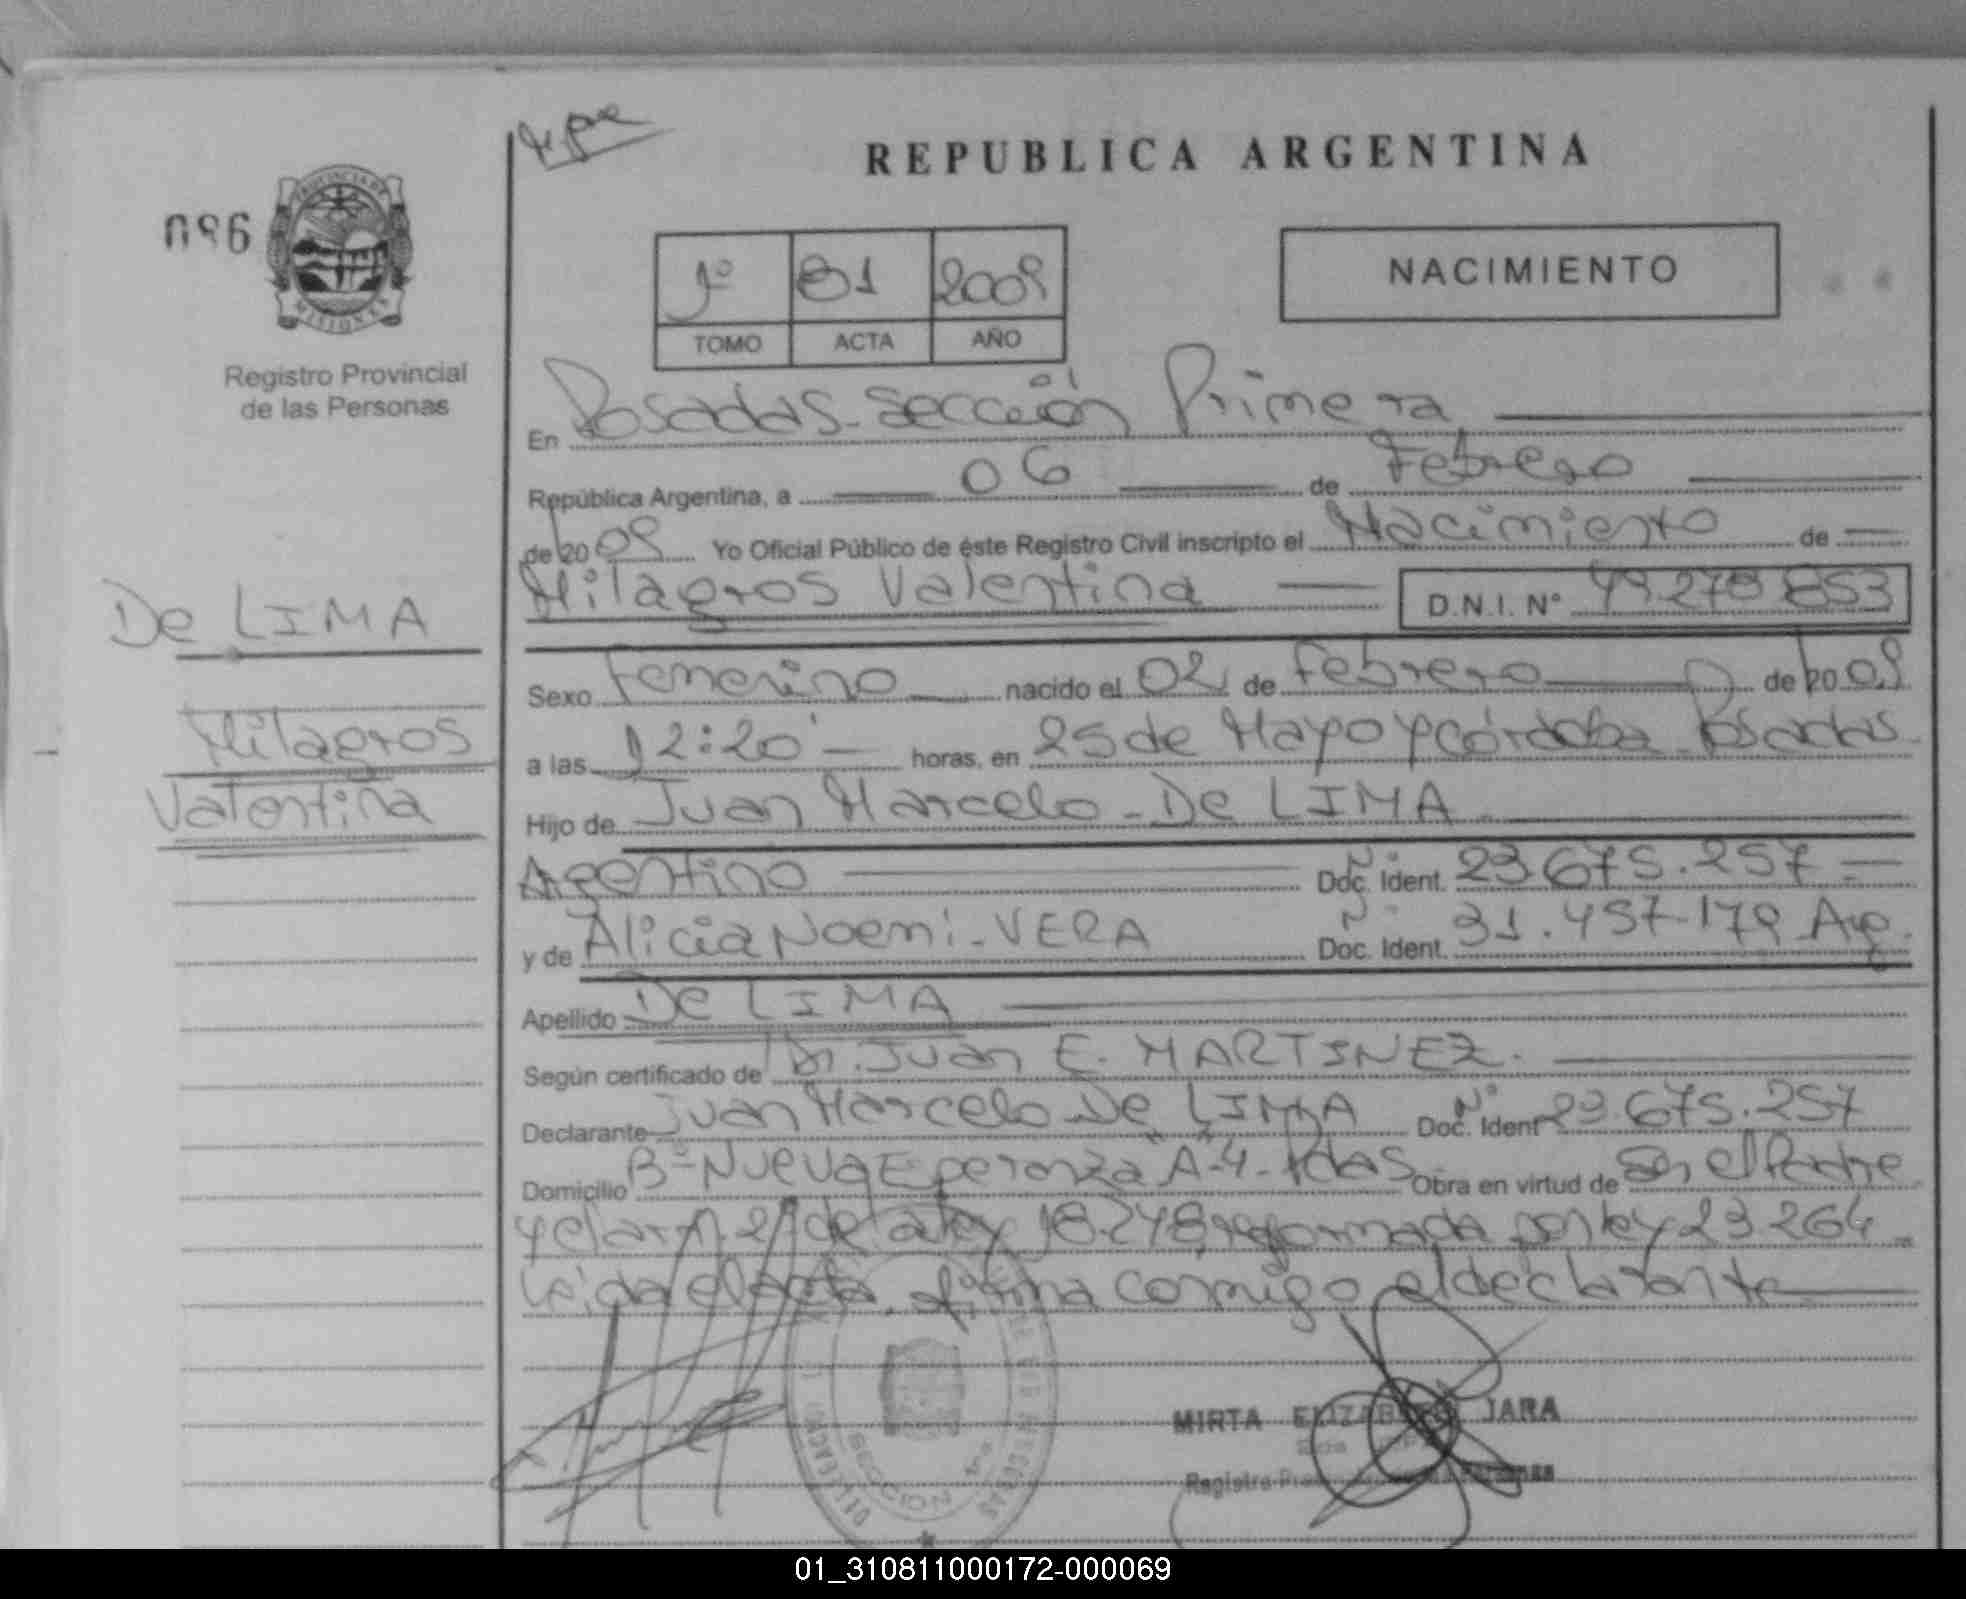 REPUBLICA ARGENTINA
086
PROVINCIA DE
MISIONES
1º 81 2009
TOMO ACTA AÑO
NACIMIENTO
Registro Provincial
de las Personas
En Posadas-Sección Primera
República Argentina, a 06 de Febrero
de 2009 Yo Oficial Público de éste Registro Civil inscripto el Nacimiento de
Milagros Valentina D.N.I. Nº 49278853
De LIMA
Milagros
Valentina
Sexo Femenino nacido el 02 de Febrero de 2009
a las 12:20 horas, en 25 de Mayo y Córdoba Posadas
Hijo de Juan Marcelo - De LIMA
Argentino Doc. Ident. Nº 23.675.257
y de Alicia Noemi - VERA Doc. Ident. Nº 31.457.179 Arg.
Apellido De LIMA
Según certificado de Dr. Juan E. MARTINEZ.
Declarante Juan Marcelo De LIMA Doc. Ident Nº 23.675.257
Domicilio Bº Nueva Eperanza A-4- Pdas Obra en virtud de Ser el Padre
y el art. 2º de la ley 18.248 reformada por ley 23.264
Leida el acta, firma conmigo el declarante
SECCION 1ra
MIRTA ELIZABETH JARA
Registro
01_310811000172-000069